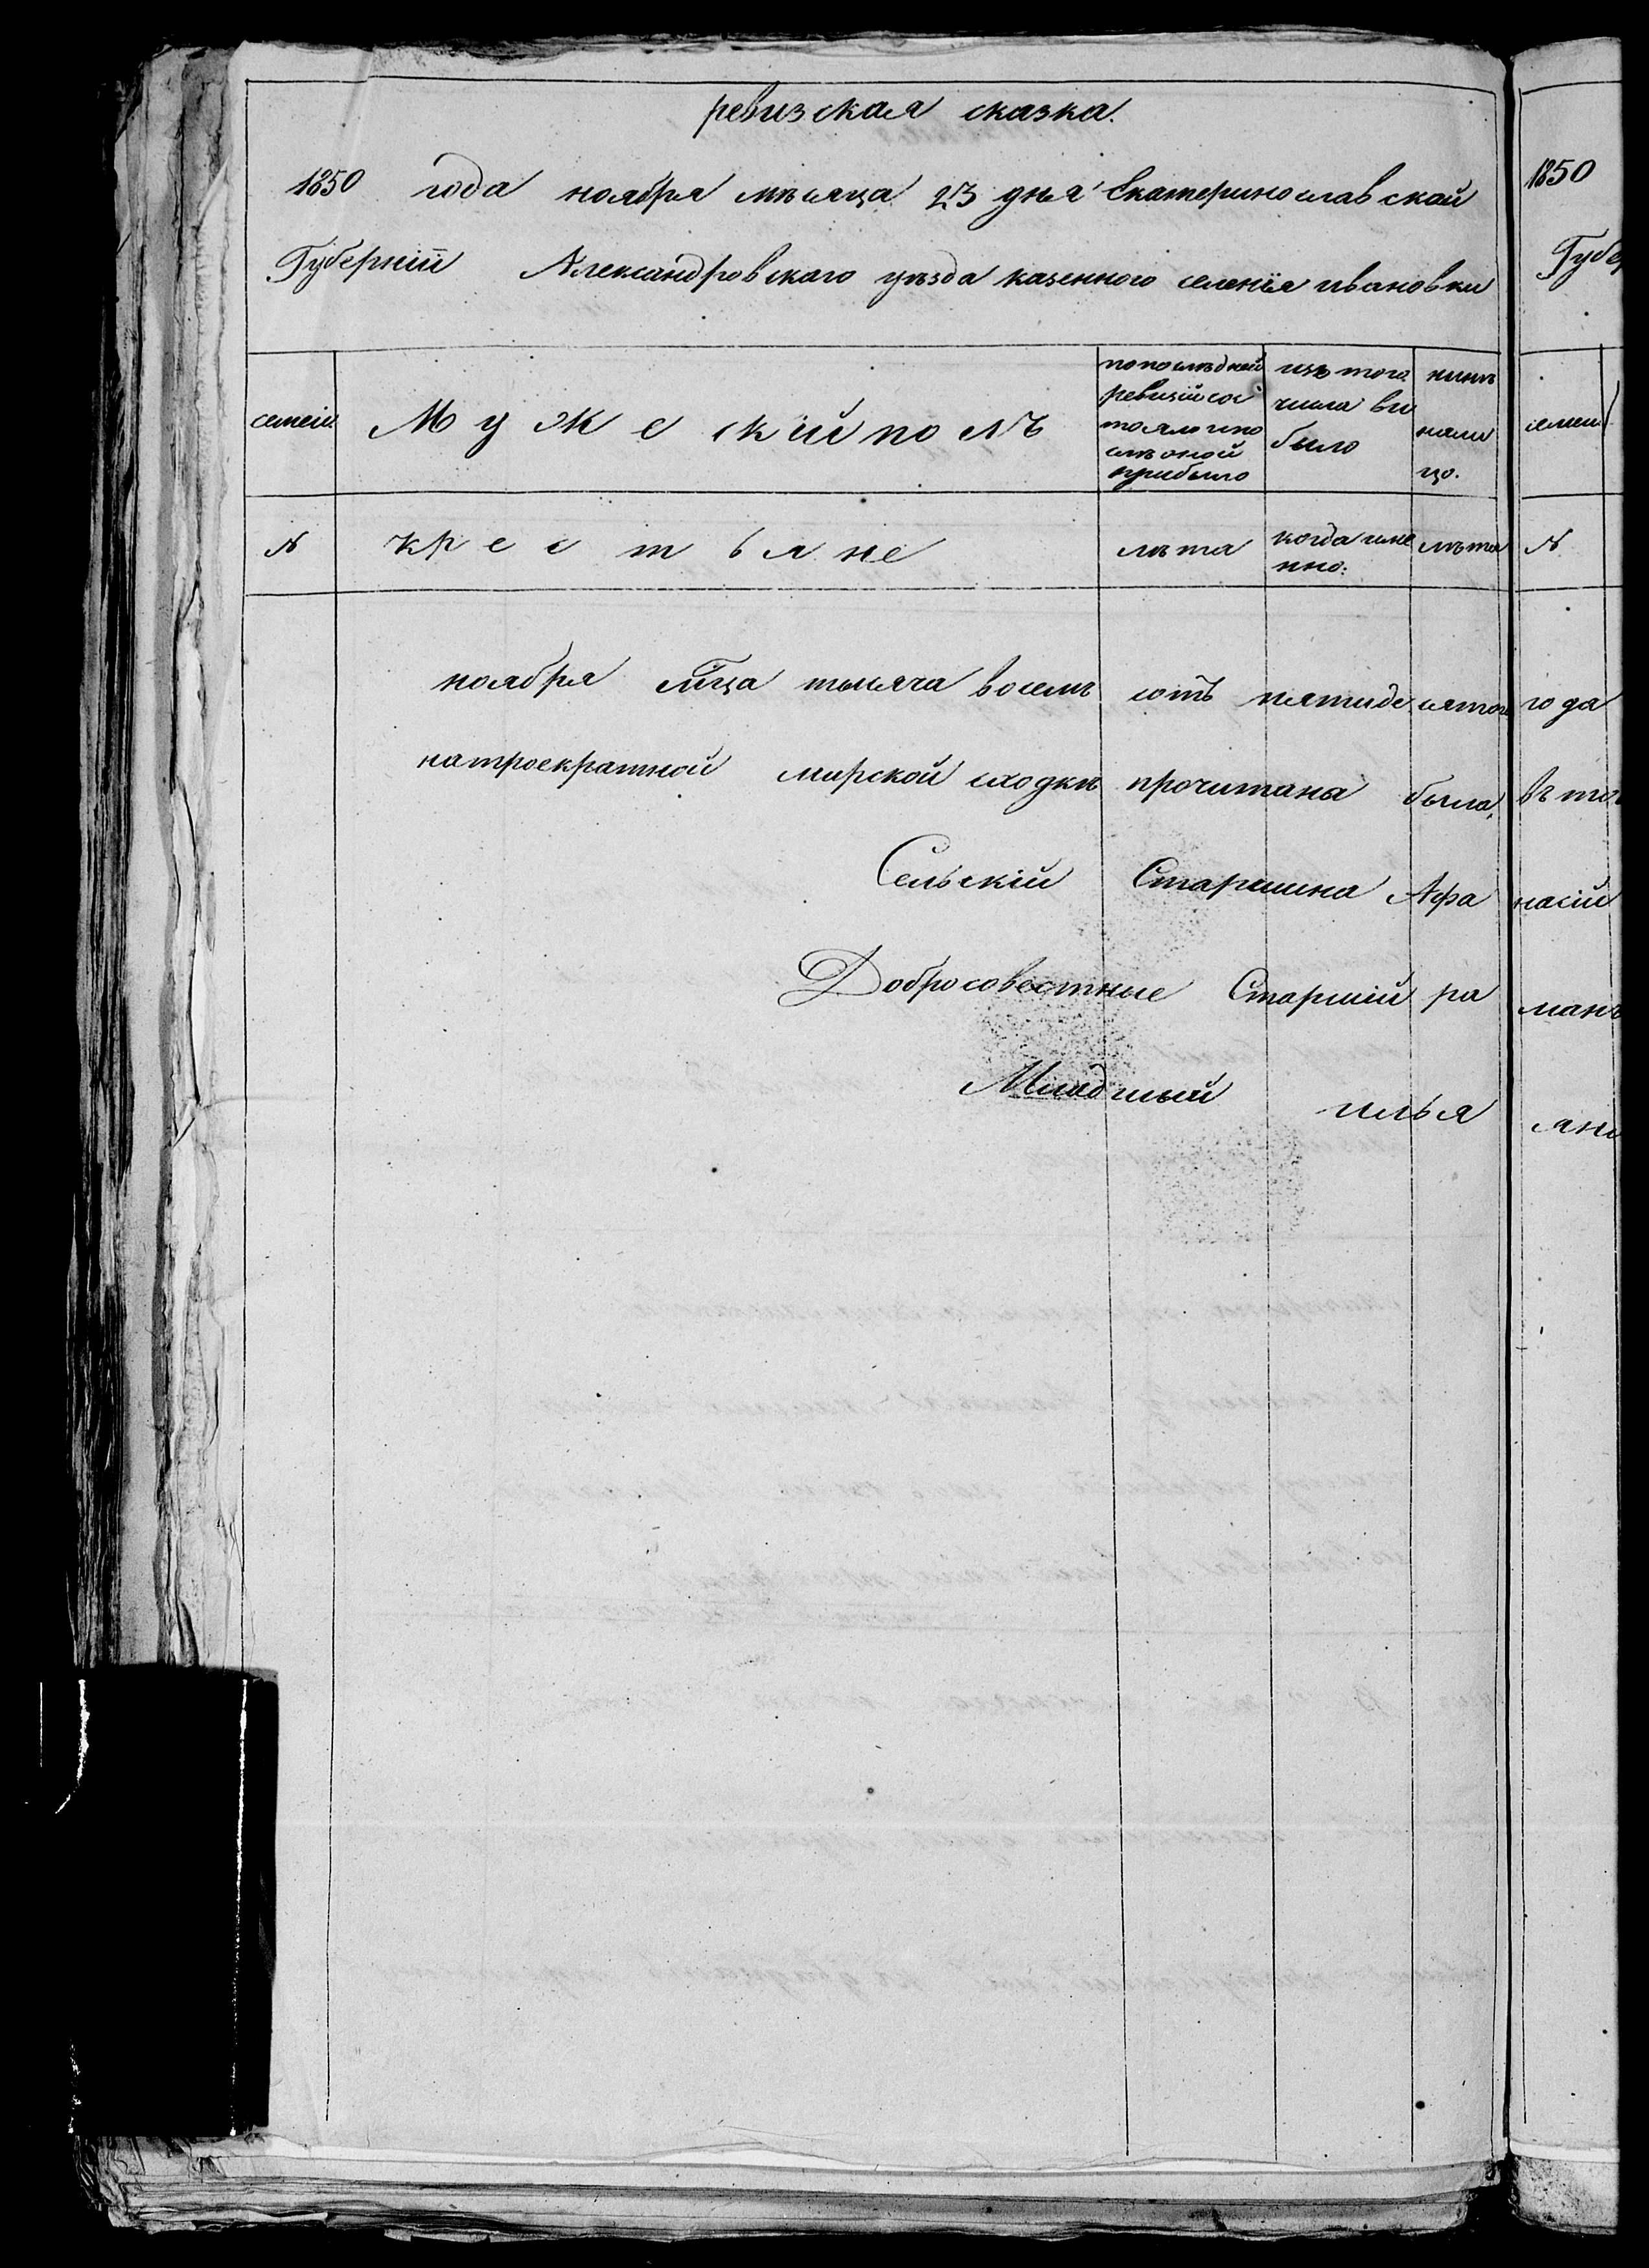 ревизская сказка.
1850 года ноября мѣсяца 23 дня Екатеринославской
Губерніи Александровского уѣзда казенного селенія ивановки
семеи
М у ж е скій по лъ
попослѣдней
ревизіи сос
тояло ипо
слѣ оной
прибыло
изъ того
числа вы
было
нынѣ
нали
цо.
№
кр е с т ь я не
лѣта
когда име
нно:
лѣта
ноября мца тысяча восемъ сотъ пятидесятого года
натроекратной мирской сходкѣ прочитана была, въ том
Сельскій Старшина Афа насій
Добросовестные Старшій ра манъ
Младшый илья
1850
Губер
семеи
№